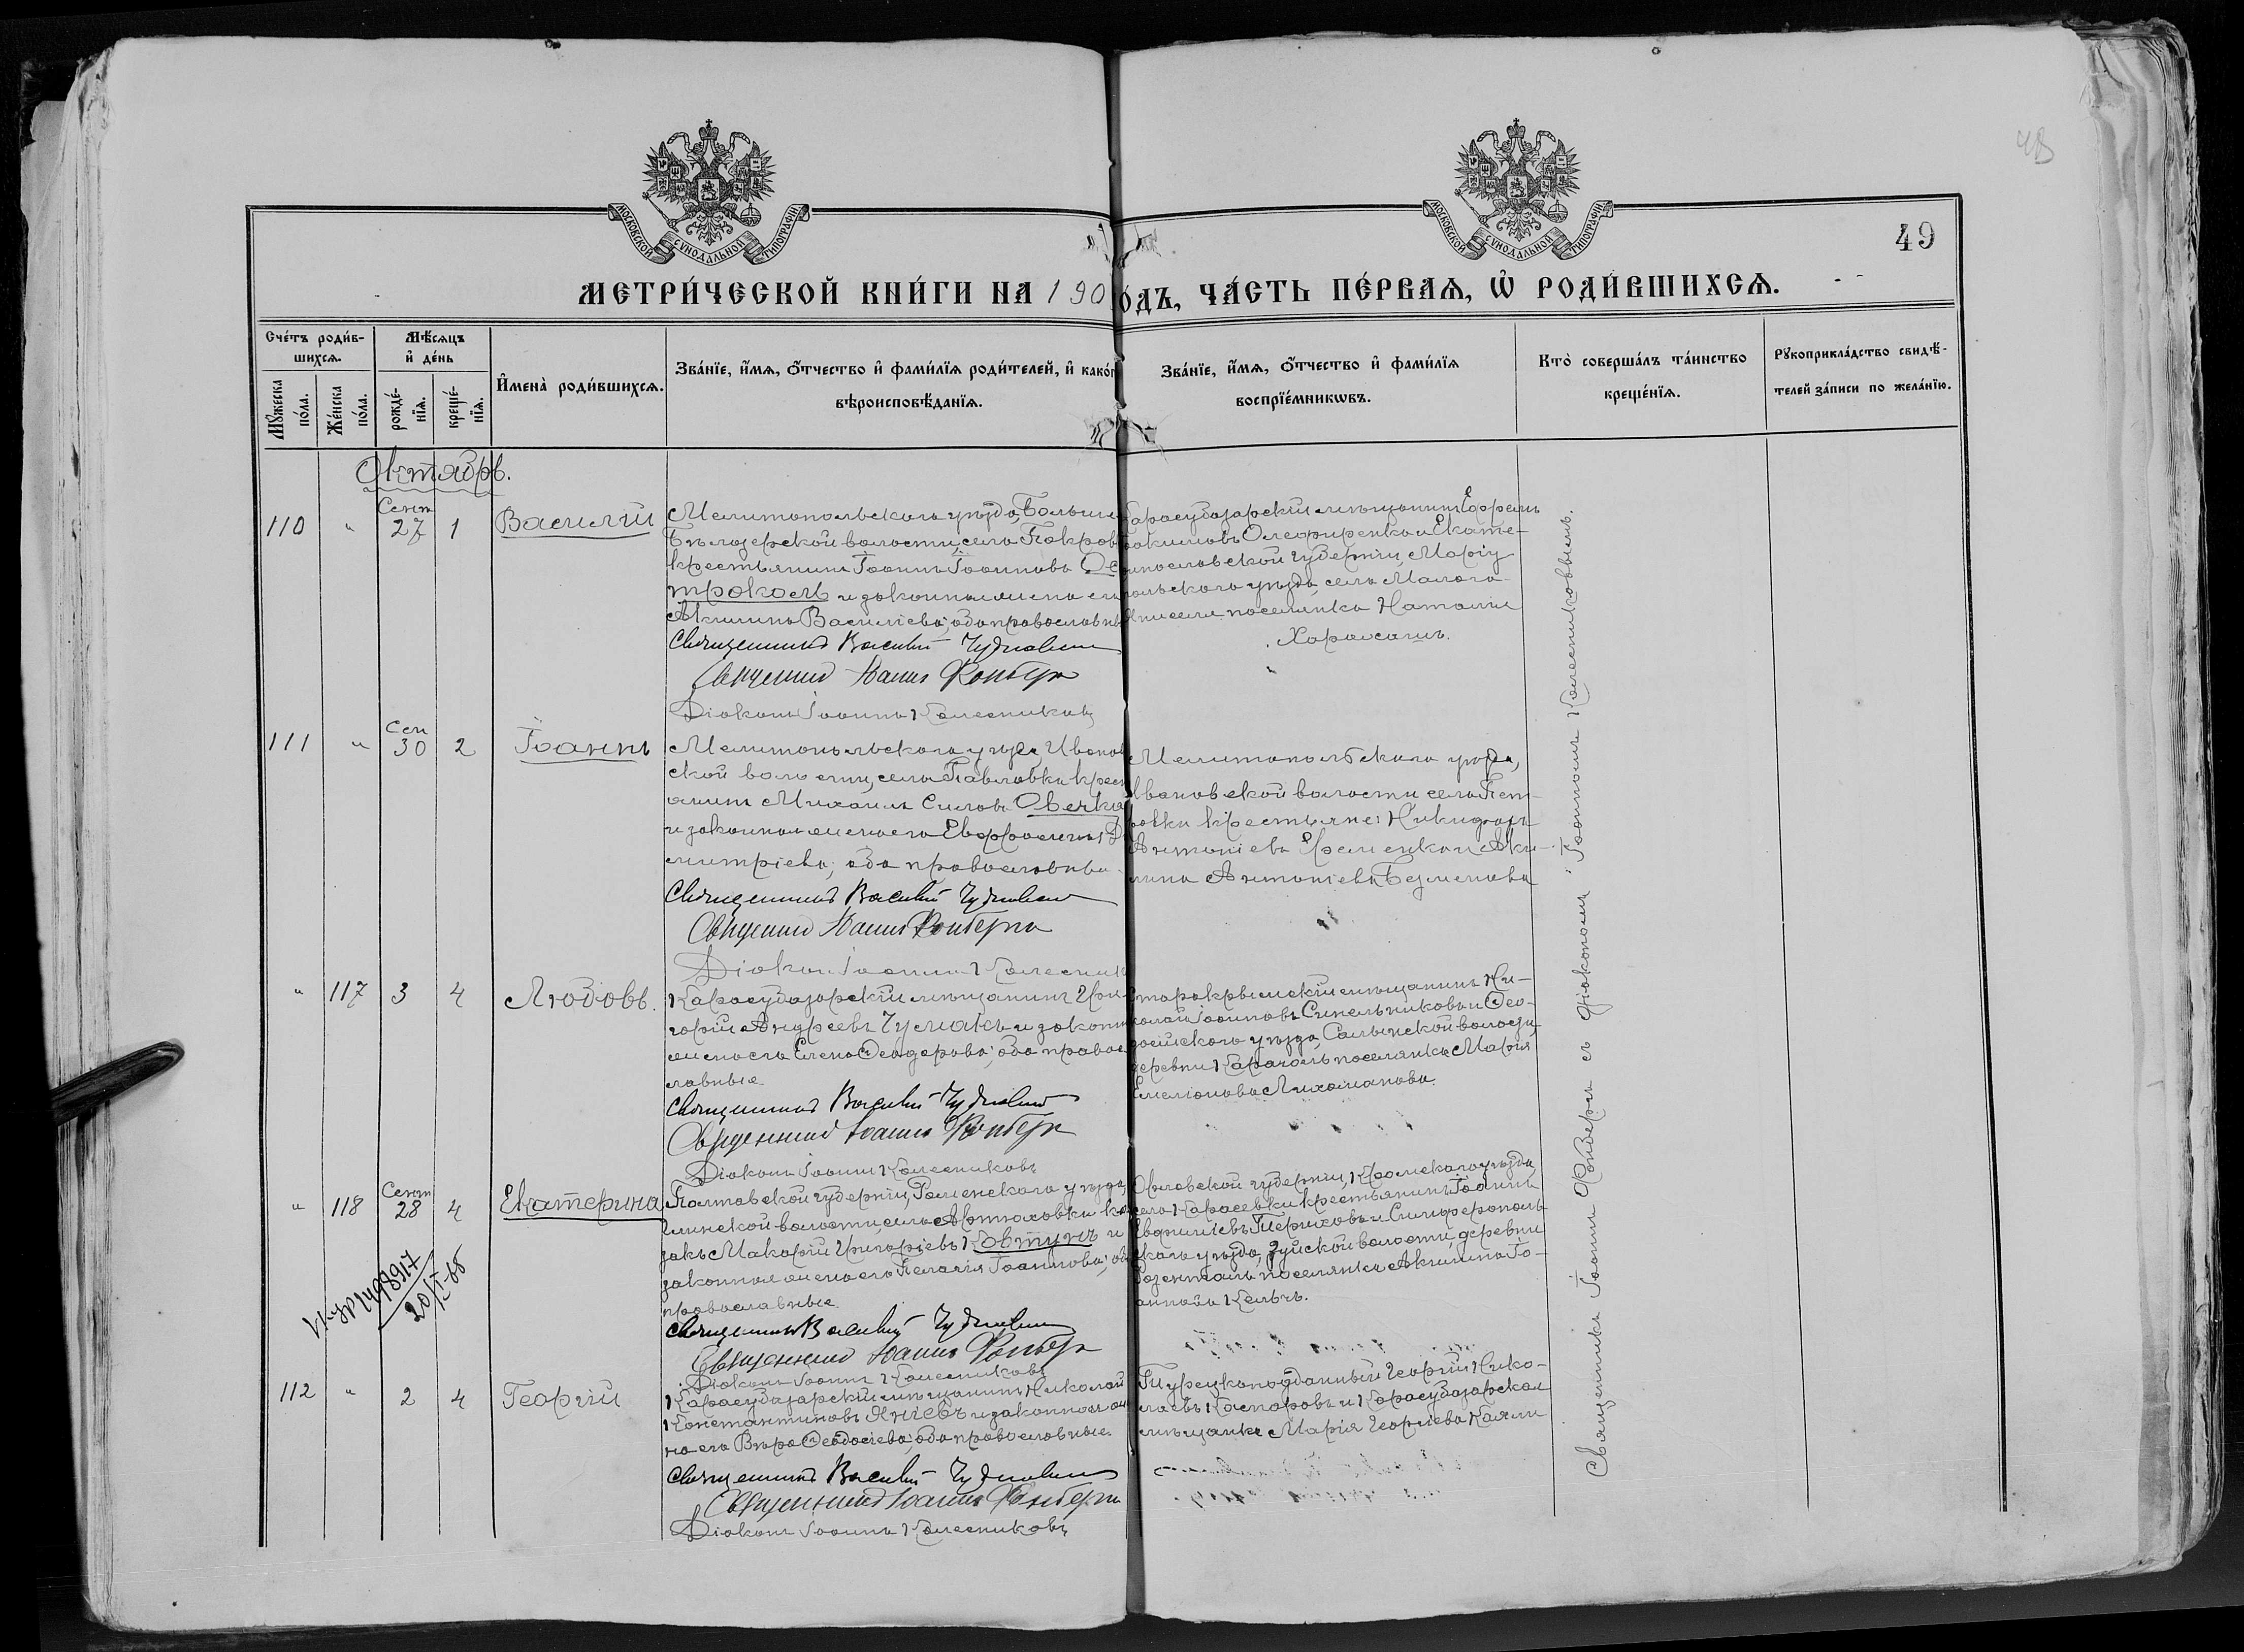 48
49
МОСКОВСКОЙ СѴНОДАЛЬНОЙ ТИПОГРАФІИ
МОСКОВСКОЙ СѴНОДАЛЬНОЙ ТИПОГРАФІИ
МЕТРИ́ЧЕСКОЙ КНИ́ГИ НА 190
О́ДЪ, ЧА́СТЬ ПЕ́РВАѦ, Ѡ҆ РОДИ́ВШИХСѦ.
Сче́тъ роди́в-
шихсѧ.
Мꙋ́жеска
по́ла.
Же́нска
по́ла.
Мѣ́сѧцъ
и҆ де́нь
рожде́-
нїѧ.
креще́-
нїѧ.
И҆мена̀ роди́вшихсѧ.
Зва́нїе, и҆́мѧ, ѻ҆́тчество и҆ фами́лїѧ роди́телей, и҆ како́г
вѣроисповѣ́данїѧ.
Зва́нїе, и҆́мѧ, ѻ҆́тчество и҆ фами́лїѧ
воспрїе́мникѡвъ.
Кто̀ соверша́лъ та́инство
креще́нїѧ.
Рꙋкоприкла́дство свидѣ́-
телей за́писи по жела́нїю.
Октябрь.
110 " Сент 27 1 Василій
Мелитопольскаго уѣзда, Больше
Бѣлозерской волости, села Покров
крестьянинъ Іоаннъ Іоанновъ Ос
трокомъ и законная жена его
Акилина Василіева; оба православн
Священникъ Василій Чудновскій
Священникъ Іоаннъ Фонберг
Діаконъ Іоаннъ Колесниковъ
Карасубазарскій мѣщанинъ Ефремъ
Олефиренко и Екате-
ринославской губерніи, Маріу
польскаго уѣзда, села Малаго
Янисели поселянка Наталія
Харахашъ.
111 " Сен 30 2 Іоаннъ
Мелитопольскаго уѣзда, Иванов
ской волости, села Павловки крест
янинъ Михаилъ Силовъ Овечко
и законная жена его Евфросинія Ди
митріева; оба православные
Священникъ Василій Чудновскій
Священникъ Іоаннъ Фонберг
Діаконъ Іоаннъ Колесник
Мелитопольскаго уѣзда,
Ивановской волости села Пет-
ровки крестьяне: Никифоръ
Антоніевъ Яременко и Аки-
лина Антоніева Безменова
" 117 3 4 Любовь.
Карасубазарскій мѣщанинъ Гри-
горій Андреевъ Чумакъ и законн
жена его Елена Ѳеодорова; оба правос
лавные
Священникъ Василій Чудновскій
Священникъ Іоаннъ Фонберг
Діаконъ Іоаннъ Колесниковъ
Старокрымскій мѣщанинъ Ни-
колай Іоанновъ Синельниковъ и Ѳео-
досійскаго уѣзда, Салынской волости,
деревни Карачоль поселянка Марія
Емеліанова Лихоманова.
" 118 Сент 28 4 Екатерина
Полтавской губерніи, Роменскаго уѣзда,
Глинской волости, села Артюховки ка
закъ Макарій Григоріевъ Ковтунъ и
законная жена его Пелагія Іоаннова; оба
православные
Священникъ Василій Чудновскій
Священникъ Іоаннъ Фонберг
Діаконъ Іоаннъ Колесниковъ
Орловской губерніи, Кромскаго уѣзда,
села Карасевки крестьянинъ Іоаннъ
Териховъ и Симферополь
скаго уѣзда, Зуйской волости, деревни
Розенталь поселянка Акилина Іо-
аннова Кельчъ.
1498917
112 " 2 4 Георгій
Карасубазарскій мѣщанинъ Николай
Константиновъ Яніевъ и законная же
на его Вѣра Ѳеодосіева; оба православные.
Священникъ Василій Чудновскій
Священникъ Іоаннъ Фонберг
Діаконъ Іоаннъ Колесниковъ
Турецкоподданный Георгій Нико-
лаевъ Каспоровъ и Карасубазарская
мѣщанка Марія Георгіева Каяли
Священникъ Іоаннъ Фонбергъ съ діакономъ Іоанномъ Колесниковымъ.